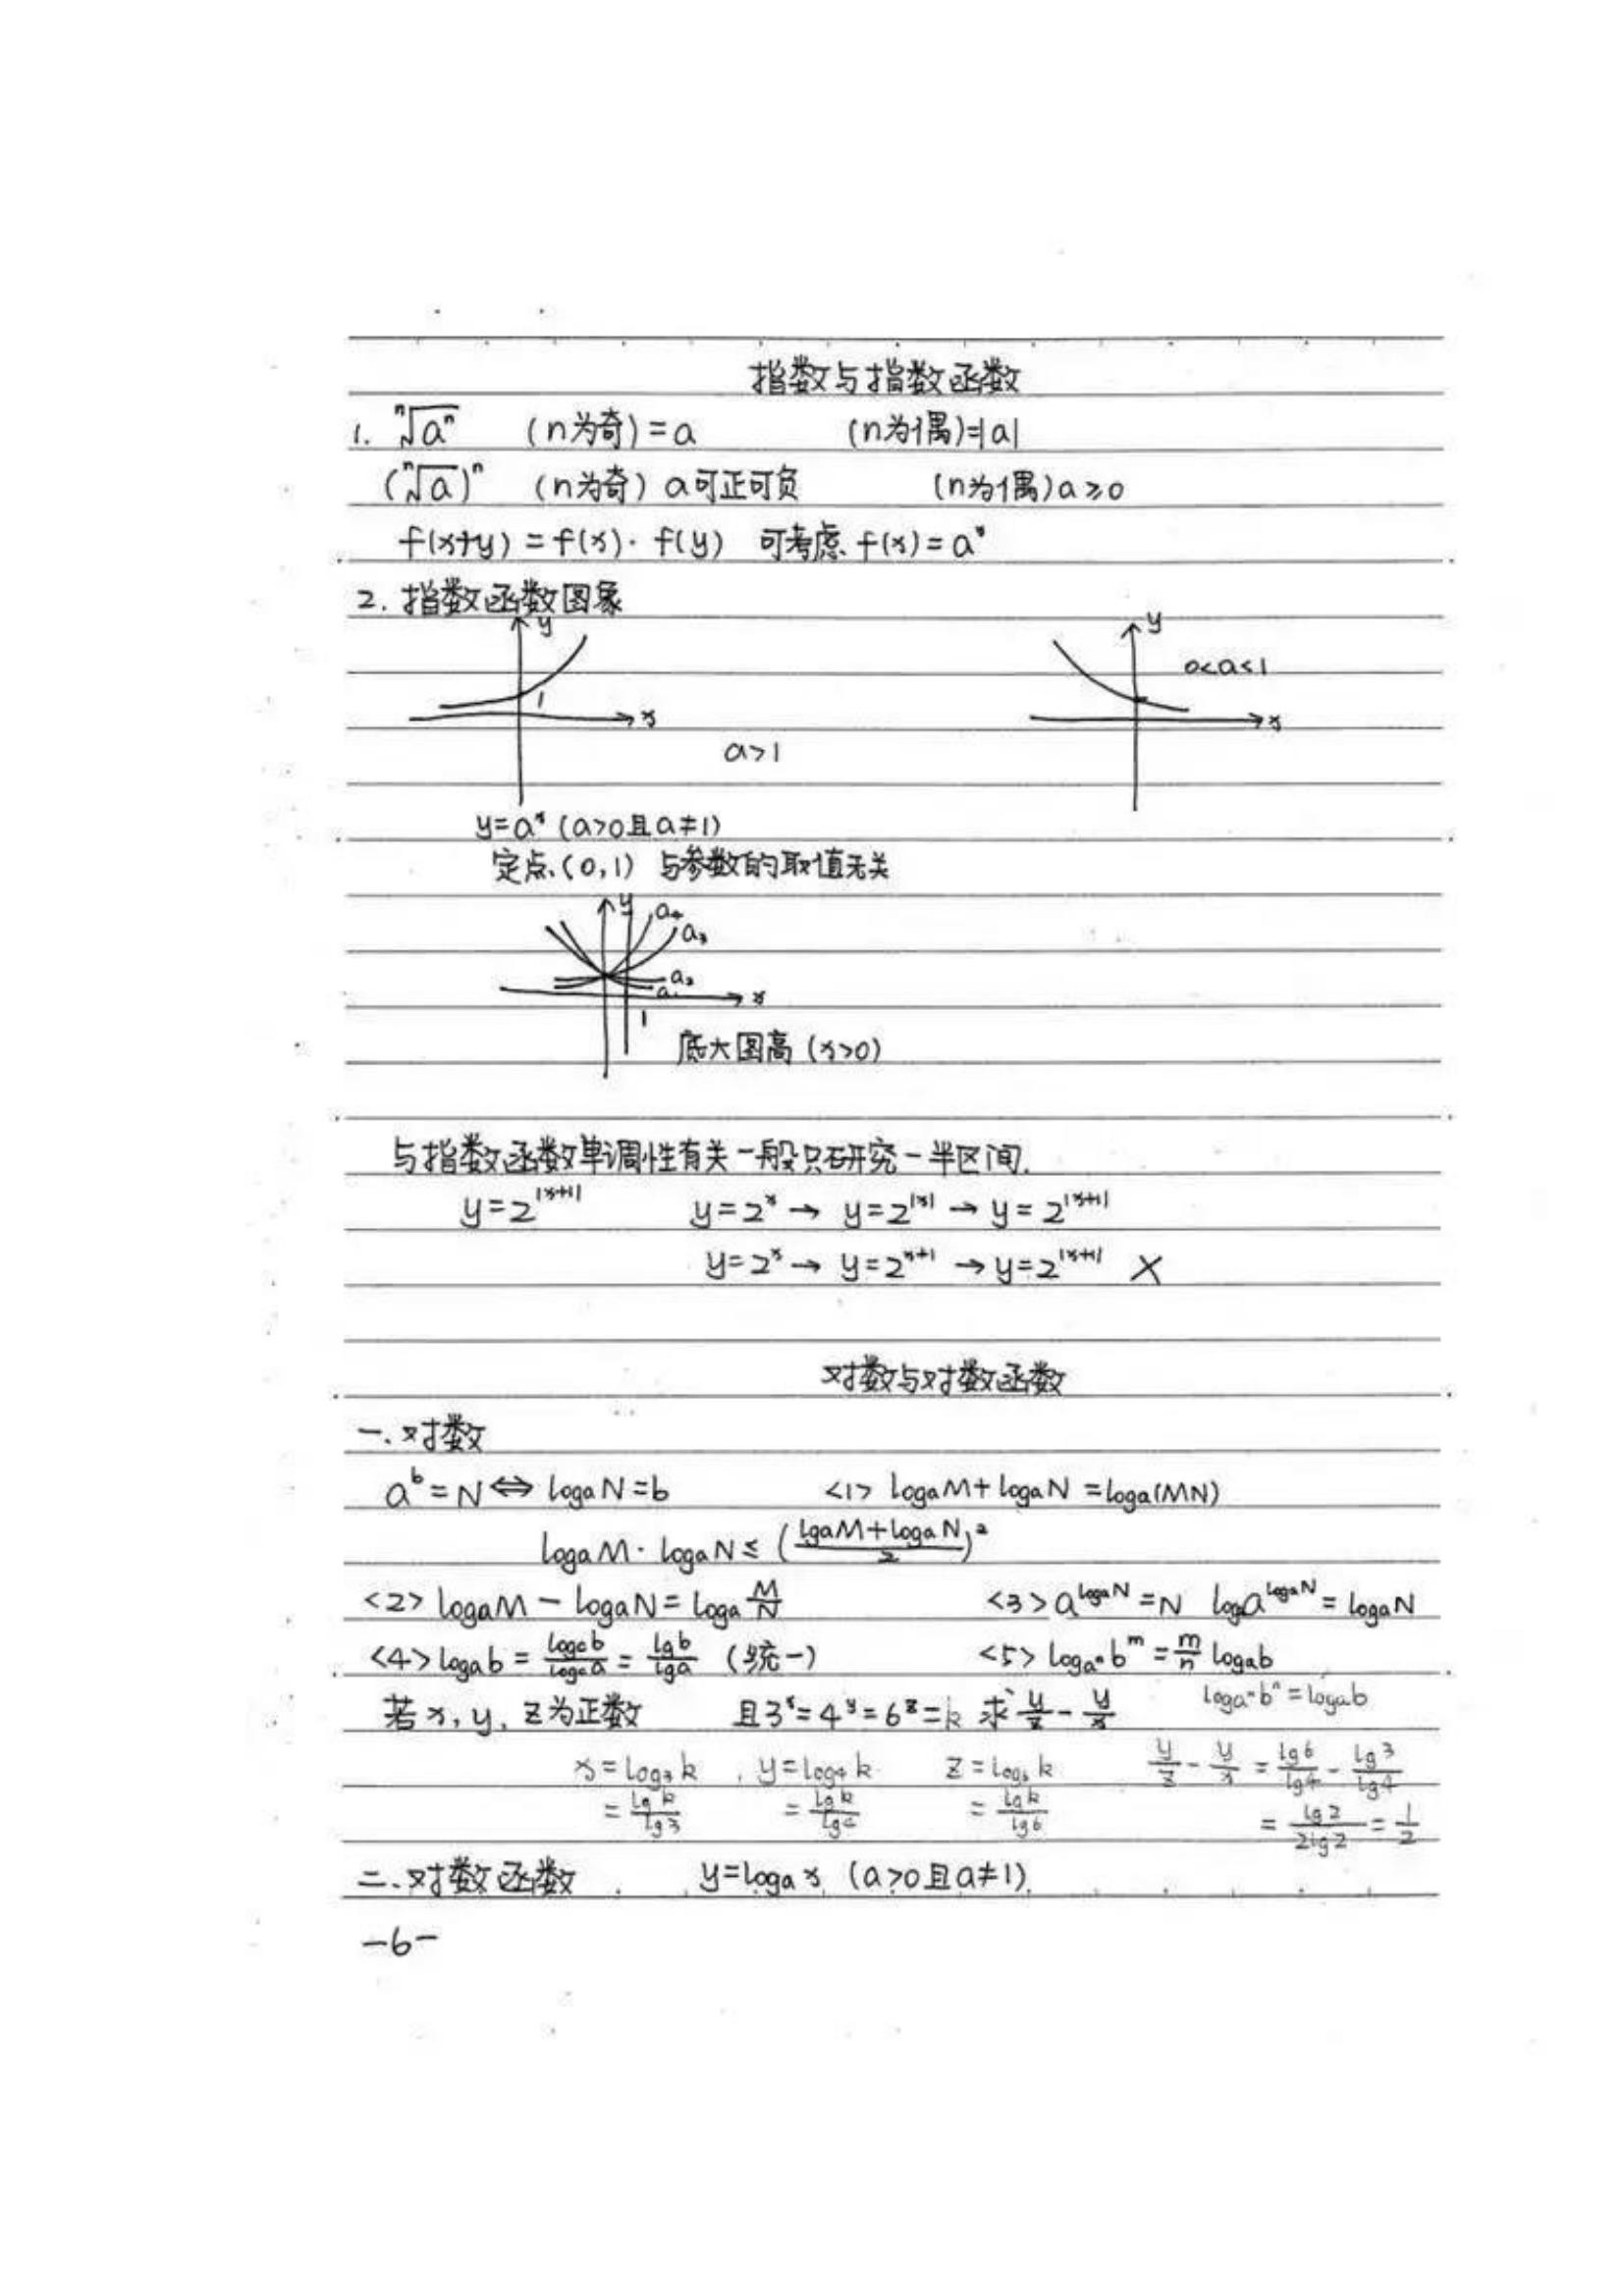 指数与指数函数
1. ⁿ√aⁿ (n为奇)=a (n为偶)=|a|
(ⁿ√a)ⁿ (n为奇) a可正可负 (n为偶) a≥0
f(x+y)=f(x)·f(y) 可考虑 f(x)=aˣ
2. 指数函数图象
y y
0<a<1
1
x x
a>1
y=aˣ (a>0且a≠1)
定点(0,1) 与参数的取值无关
y a₄
a₃
a₂
a₁ x
1
底大图高 (x>0)
与指数函数单调性有关一般只研究一半区间.
y=2^|x+1| y=2^x → y=2^|x| → y=2^|x+1|
y=2^x → y=2^x+1 → y=2^|x+1| ×
对数与对数函数
一.对数
a^b=N⇔logaN=b <1> logaM+logaN=loga(MN)
logaM·logaN≤(lgaM+logaN/2)²
<2> logaM-logaN=loga M/N <3> a^logaN=N loga a^logaN=logaN
<4> logab=logcb/logca=lgb/lga (统一) <5> logaⁿb^m=m/n logab
logaⁿbⁿ=logab
若x,y,z为正数 且3^x=4^y=6^z=k 求 y/z-y/x
x=log₃k , y=log₄k z=log₆k y/z-y/x=lg6/lg4-lg3/lg4
=lgk/lg3 =lgk/lg4 =lgk/lg6 =lg2/2lg2=1/2
二.对数函数 y=logax (a>0且a≠1)
-6-